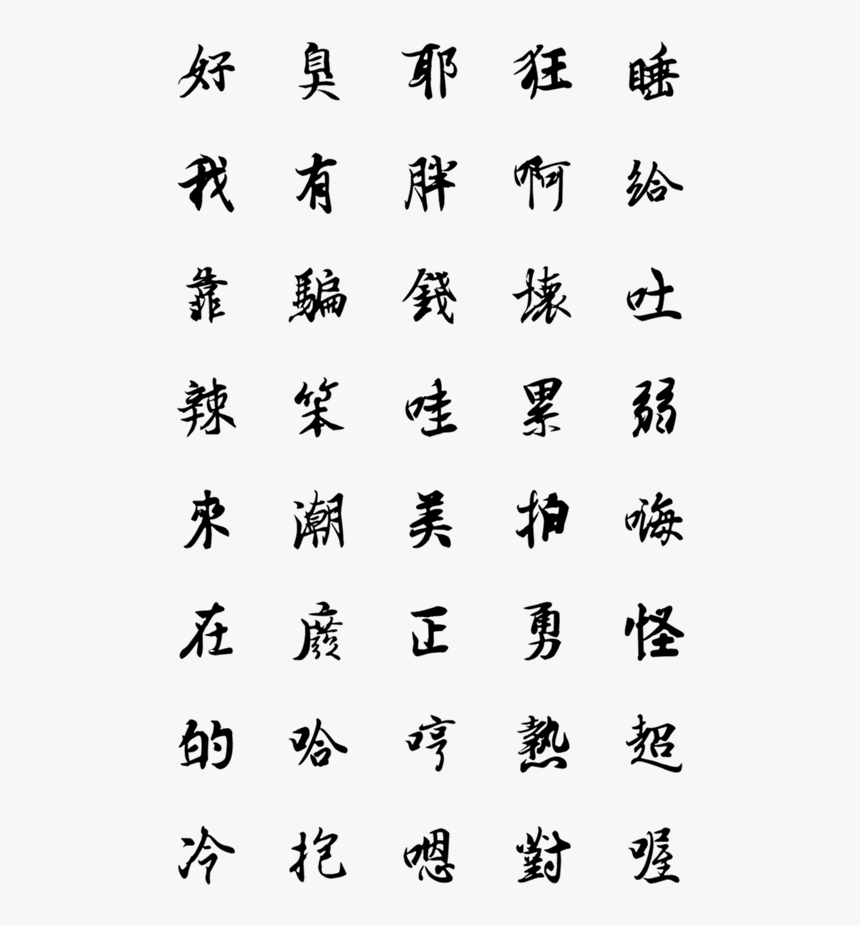 好 臭 耶 狂 睡
我 有 胖 啊 給
靠 騙 錢 壞 吐
辣 笨 哇 累 弱
來 潮 美 拍 嗨
在 廢 正 勇 怪
的 哈 哼 熱 超
冷 抱 嗯 對 喔